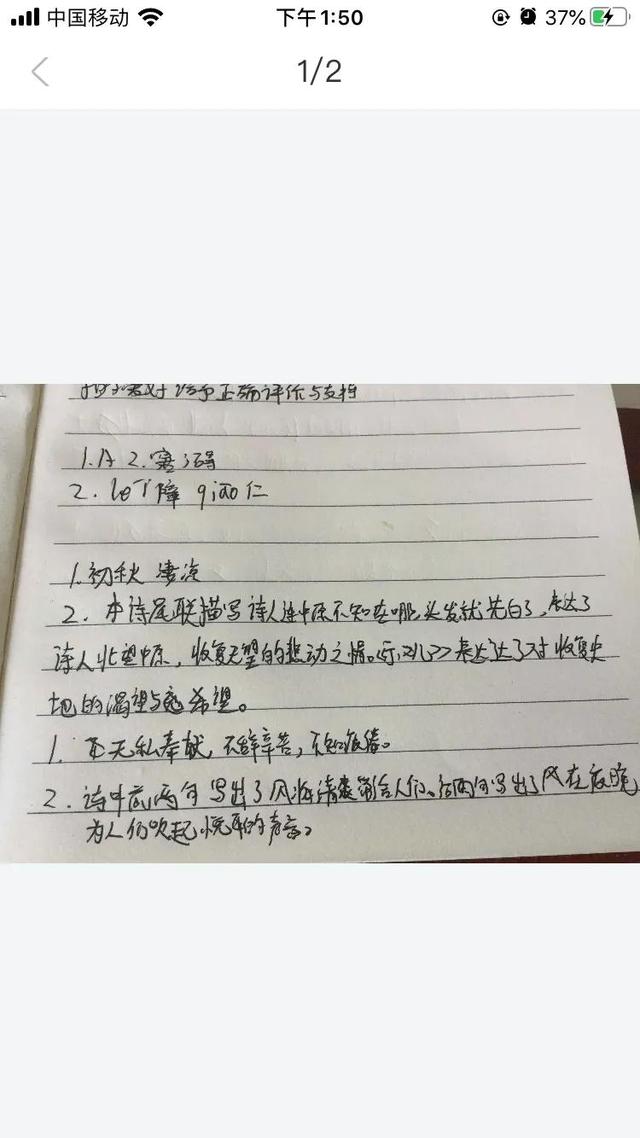 中国移动 下午1:50 37%
1/2
给予正确评价与支持
1.A 2.
2. 障 qiào 仁
1.初秋 凄凉
2.本诗尾联描写诗人连中原不知在哪,头发就先白了,表达了
诗人北望中原,收复无望的悲动之情。 表达了对收复失
地的渴望与 希望。
1. 无私奉献,不辞辛苦,不知疲倦。
2.诗中前两句写出了风将清爽带给人们。后两句写出了风在夜晚
为人们吹起悦耳的声音。